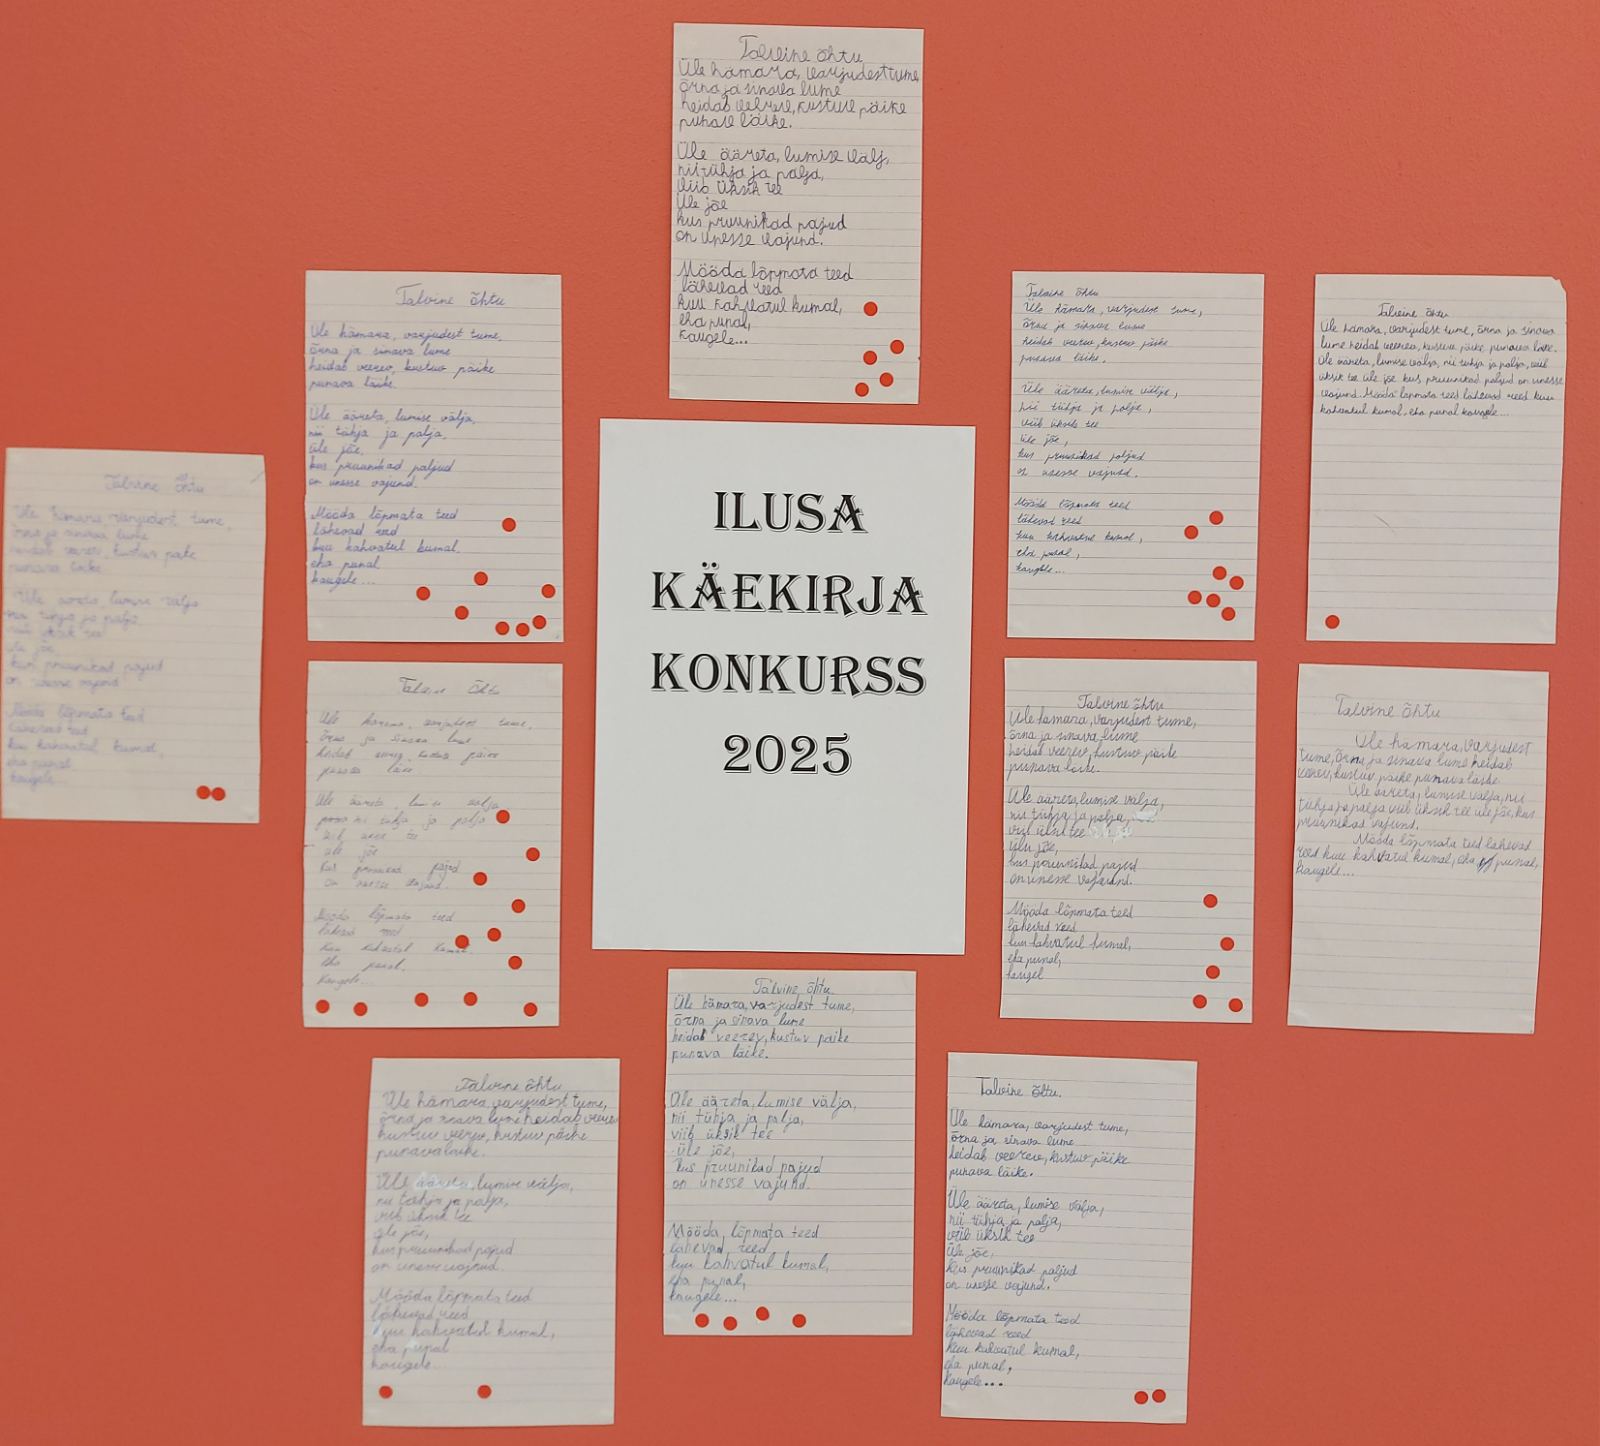 Talvine õhtu
Üle hämara, varjudest tume,
õrna ja sinava lume
heidab veerev, kustuv päike
punase läike.
Üle ääreta, lumise välj,
nii tühja ja palja,
viib üksik tee
Üle jõe
kus pruunikad pajud
on unesse vajund.
Mööda lõpmata teed
lähevad reed
kuu kahvatul kumal,
eha punal,
kaugele...
Talvine õhtu
Üle hämara, varjudest tume,
õrna ja sinava lume
heidab veerev, kustuv päike
punava läike.
Üle ääreta, lumise välja,
nii tühja ja palja,
üle jõe,
kus pruunikad paljud
on unesse vajund.
Mööda lõpmata teed
lähevad reed
kuu kahvatul kumal.
eha punal
kaugele...
Talvine õhtu
Üle hämara, varjudest tume,
õrna ja sinava lume
heidab veerev, kustuv päike
punava läike.
Üle ääreta, lumise välja,
nii tühja ja palja,
viib üksik tee
üle jõe,
kus pruunikad paljud
on unesse vajund.
Mööda lõpmata teed
lähevad reed
kuu kahvatul kumal,
eha punal,
kaugele...
Talvine õhtu
Üle hämara, varjudest tume, õrna ja sinava
lume heidab veerev, kustuv päike, punava läike.
Üle ääreta, lumise välja, nii tühja ja palja, viib
üksik tee üle jõe kus pruunikad paljud on unesse
vajund. Mööda lõpmata teed lähevad reed kuu
kahvatul kumal, eha punal kaugele...
Talvine õhtu
Üle hämara varjudest tume,
õrna ja sinava lume
heidab veerev, kustuv
punava
Üle lumise välja
tühja ja palja
üksik tee
üle jõe
kus pruunikad pajud
on unesse vajund
Mööda lõpmata teed
kuu kahvatul kumal,
eha punal
kaugele
ILUSA
KÄEKIRJA
KONKURSS
2025
Talvine õhtu
Üle varjudest tume,
õrna ja sinava lume
heidab kustuv päike
läike
Üle ääreta, välja
nii tühja ja palja
tee
üle jõe
kus pruunikad pajud
on unesse vajund.
Mööda lõpmata teed
kuu kahvatul kumal
eha punal.
Kaugele...
Talvine õhtu
Üle hämara, varjudest tume,
õrna ja sinava lume
heidab veerev, kustuv päike
punava läike.
Üle ääreta, lumise välja,
nii tühja ja palja,
viib üksi tee
üle jõe,
kus pruunikad pajud
on unesse vajund.
Mööda lõpmata teed
lähevad reed
kuu kahvatul kumal,
eha punal,
kaugel
Talvine õhtu
Üle hämara, varjudest
tume, õrna ja sinava lume heidab
veerev, kustuv päike punava läike.
Üle ääreta, lumise välja, nii
tühja ja palja viib üksik tee üle jõe, kus
pruunikad vajund.
Mööda lõpmata teed lähevad
reed kuu kahvatul kumal, eha punal,
kaugele...
Talvine õhtu
Üle hämara, varjudest tume,
õrna ja sinava lume heidab veerev
kustuv veerev, kustuv päike
punava läike.
Üle ääreta, lumise välja,
nii tühja ja palja,
viib üksik tee
üle jõe,
kus pruunikad pajud
on unesse vajnud.
Mööda lõpmata teed
lähevad reed
kuu kahvatul kumal,
eha punal
kaugele...
Talvine õhtu
Üle hämara, varjudest tume,
õrna ja sinava lume
heidab veerev, kustuv päike
punava läike.
Üle ääreta, lumise välja,
nii tühja ja palja,
viib üksik tee
üle jõe,
kus pruunikad pajud
on unesse vajund.
Mööda, lõpmata teed
lähevad, reed
kuu kahvatul kumal,
eha punal,
kaugele...
Talvine õhtu.
Üle hämara, varjudest tume,
õrna ja sinava lume
heidab veerev, kustuv päike
punava läike.
Üle ääreta, lumise välja,
nii tühja ja palja,
viib üksik tee
Üle jõe,
kus pruunikad paljud
on unesse vajund.
Mööda lõpmata teed
lähevad reed
kuu kahvatul kumal,
eha punal,
kaugele...